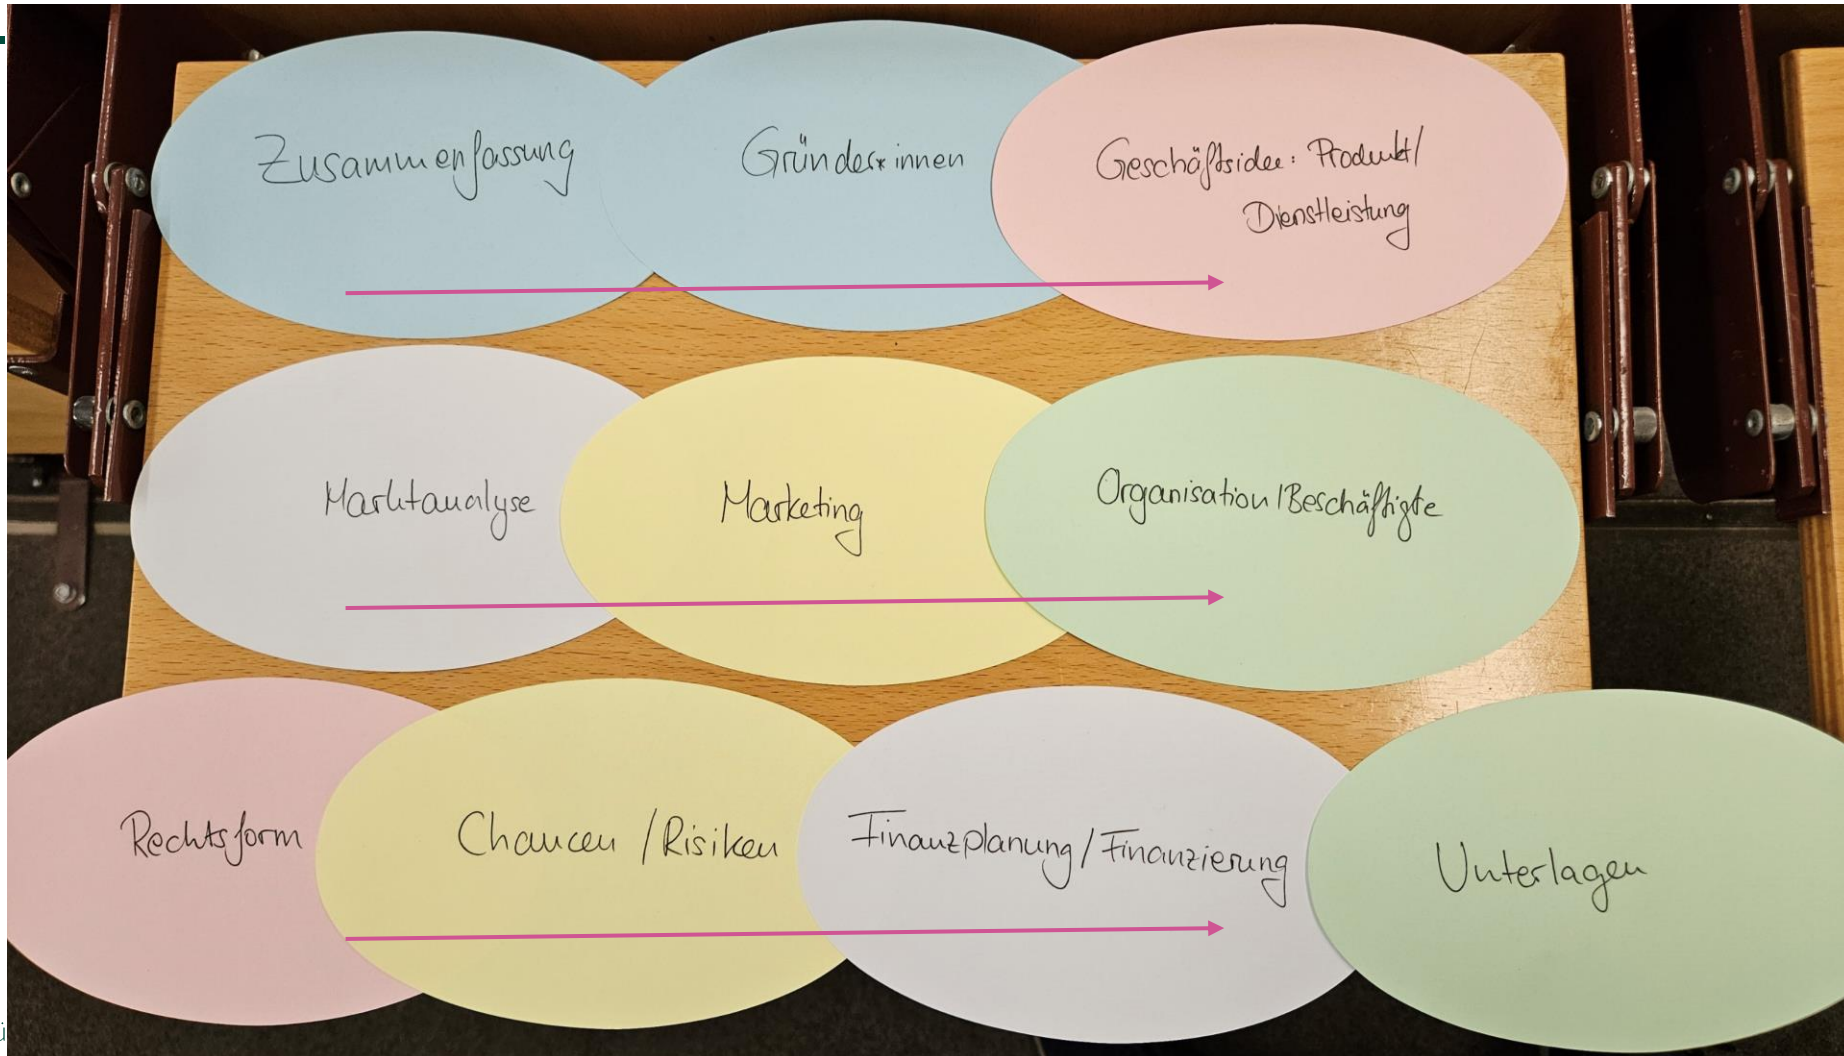 Zusammenfassung
Gründer*innen
Geschäftsidee: Produkt/
Dienstleistung
Marktanalyse
Marketing
Organisation/Beschäftigte
Rechtsform
Chancen/Risiken
Finanzplanung/Finanzierung
Unterlagen